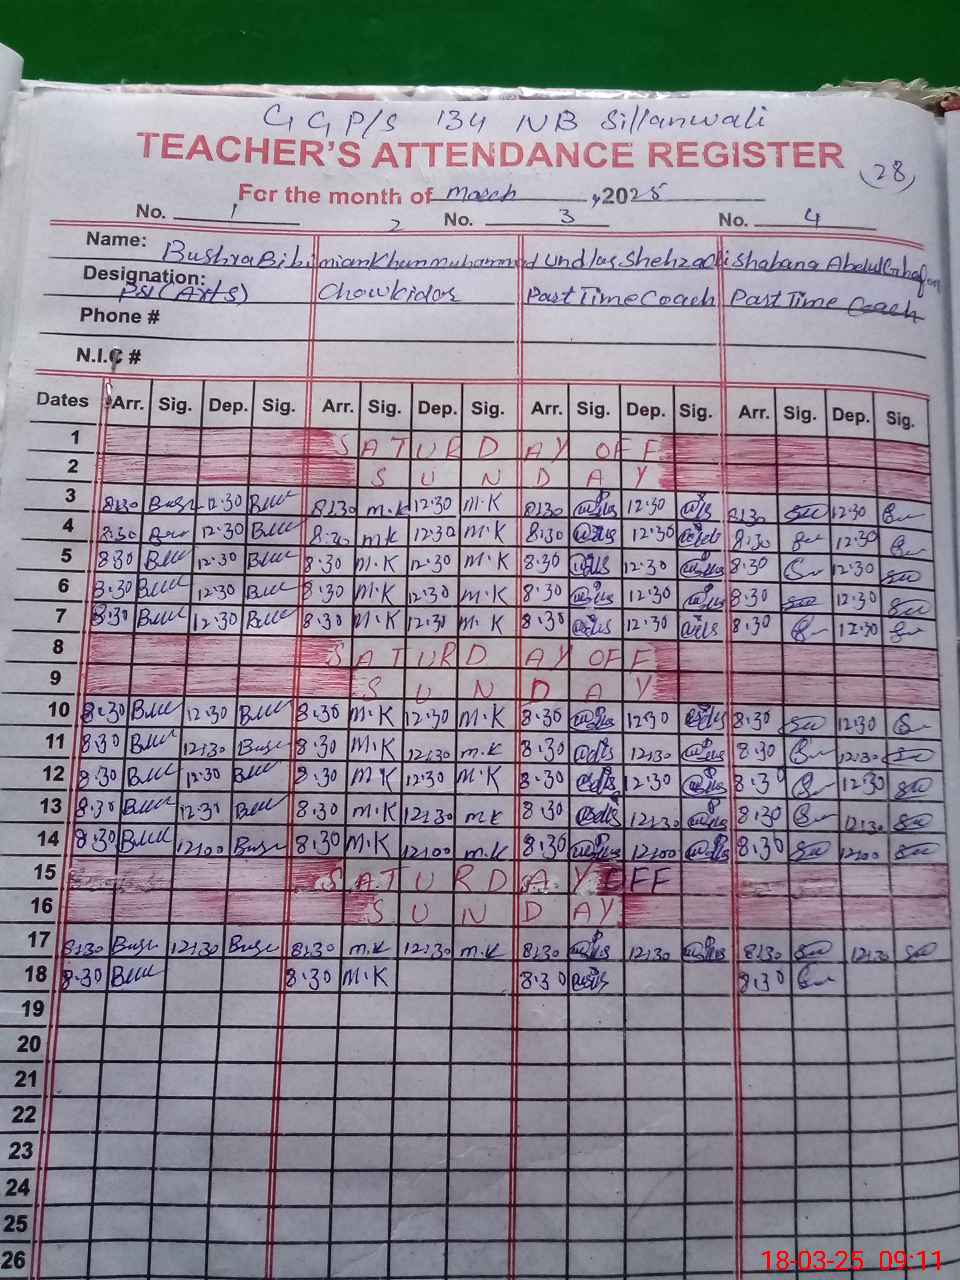 G G P/S 134 NB Sillanwali
TEACHER'S ATTENDANCE REGISTER
(28)
For the month of March, 2025
No. 1 2 No. 3 No. 4
Name: Bushra Bibi mian Khan muhammad Undlas Shehzadi Shabana Abdul Ghafoor
Designation: PST (AHS) Chowkidar Part Time Coach Part Time Coach
Phone #
N.I.C #
Dates Arr. Sig. Dep. Sig. Arr. Sig. Dep. Sig. Arr. Sig. Dep. Sig. Arr. Sig. Dep. Sig.
1 SATURDAY OFF
2 SUNDAY
3 8:30 12:30 8:30 M.K 12:30 M.K 8:30 12:30 8:30 12:30
4 8:30 12:30 8:30 M.K 12:30 M.K 8:30 12:30 8:30 12:30
5 8:30 12:30 8:30 M.K 12:30 M.K 8:30 12:30 8:30 12:30
6 8:30 12:30 8:30 M.K 12:30 M.K 8:30 12:30 8:30 12:30
7 8:30 12:30 8:30 M.K 12:30 M.K 8:30 12:30 8:30 12:30
8 SATURDAY OFF
9 SUNDAY
10 8:30 12:30 8:30 M.K 12:30 M.K 8:30 12:30 8:30 12:30
11 8:30 12:30 8:30 M.K 12:30 M.K 8:30 12:30 8:30 12:30
12 8:30 12:30 8:30 M.K 12:30 M.K 8:30 12:30 8:30 12:30
13 8:30 12:30 8:30 M.K 12:30 M.K 8:30 12:30 8:30 12:30
14 8:30 12:00 8:30 M.K 12:00 M.K 8:30 12:00 8:30 12:00
15 SATURDAY OFF
16 SUNDAY
17 8:30 12:30 8:30 M.K 12:30 M.K 8:30 12:30 8:30 12:30
18 8:30 8:30 M.K 8:30 8:30
19
20
21
22
23
24
25
26
18-03-25 09:11